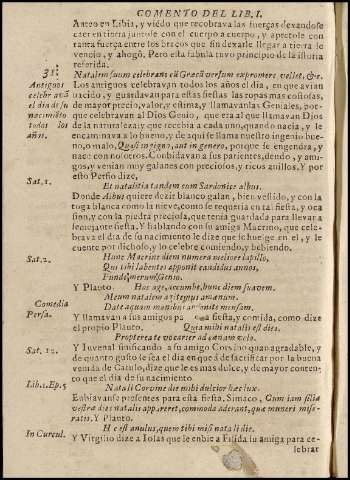 COMENTO DEL LIB. I.
Anteo en Libia, y viédo que recobrava las fuerças dexandose
caer en tierra juntose con el cuerpo a cuerpo, y apretole con
tanta fuerça entre los braços que sin dexarle llegar a tierra le
vencio, y ahogó. Pero esta fabula tuvo principio de la istoria
referida.
31. Natalem suum celebrans cū Græcū versum expromere vellet, &c.
Antiguos Los antiguos celebravan todos los años el dia, en que avian
celebravā nacido, y guardavan para esta fiesta las ropas mas costosas,
el dia de su de mayor precio, valor, y estima, y llamavanlas Geniales, por-
nacimiéto que celebravan al Dios Genio, que era al que llamavan Dios
todos los de la naturaleza, y que recebia a cada uno, quando nacia, y le
años. encaminava a lo bueno, y de aqui se llama nuestro ingenio bue-
no, o malo, Quasi ingeni, aut in genero, porque se engendra, y
nace con nosotros. Conbidavan a sus parientes, deudos, y ami-
gos, y venian muy galanes con preciosos, y ricos anillos. Y por
esto Persio dize,
Sat. 1. Et natalitia tandem cum Sardoniche albus.
Donde Albus quiere dezir blanco galan, bien vestido, y con la
toga blanca como la nieve, como se requeria en tal fiesta, y oca
sion, y con la piedra preciosa, que tenia guardada para llevar a
semejante fiesta. Y hablando con su amigo Macrino, que cele-
brava el dia de su nacimiento le dize que se huelge en el, y le
cuente por dichoso, y lo celebre comiendo, y bebiendo.
Sat. 2. Hunc Macrine diem numera meliore lapillo,
Qui tibi labentes apponit candidus annos,
Funde merum Genio.
Y Plauto. Hos age, accumbe, hunc diem suavem.
Comedia Meum natalem agitemus amœnum.
Persa. Date aquam manibus, apponite mensam.
Y llamavan a sus amigos para fiesta, y comida, como dize
el propio Plauto. Quia mihi natalis est dies.
Propterea te vocarier ad cœnam volo.
Sat. 12. Y Iuvenal sinificando a su amigo Corvino quan agradable, y
de quanto gusto le sea el dia en que á de sacrificar por la buena
venida de Catulo, dize que le es mas dulce, y de mayor conten-
to que el dia de su nacimiento.
Lib. 1. Ep. 5 Natali Corvine die mihi dulcior hæc lux.
Enbiavanse presentes para esta fiesta. Simaco, Cum iam filiæ
vestræ dies natalis appareret, commode aderant, quæ muneri mise-
ratis. Y Plauto.
In Curcul. Hic est anulus, quem tibi misi natali die.
Y Virgilio dize a Iolas que le enbie a Filida su amiga para ce-
lebrar